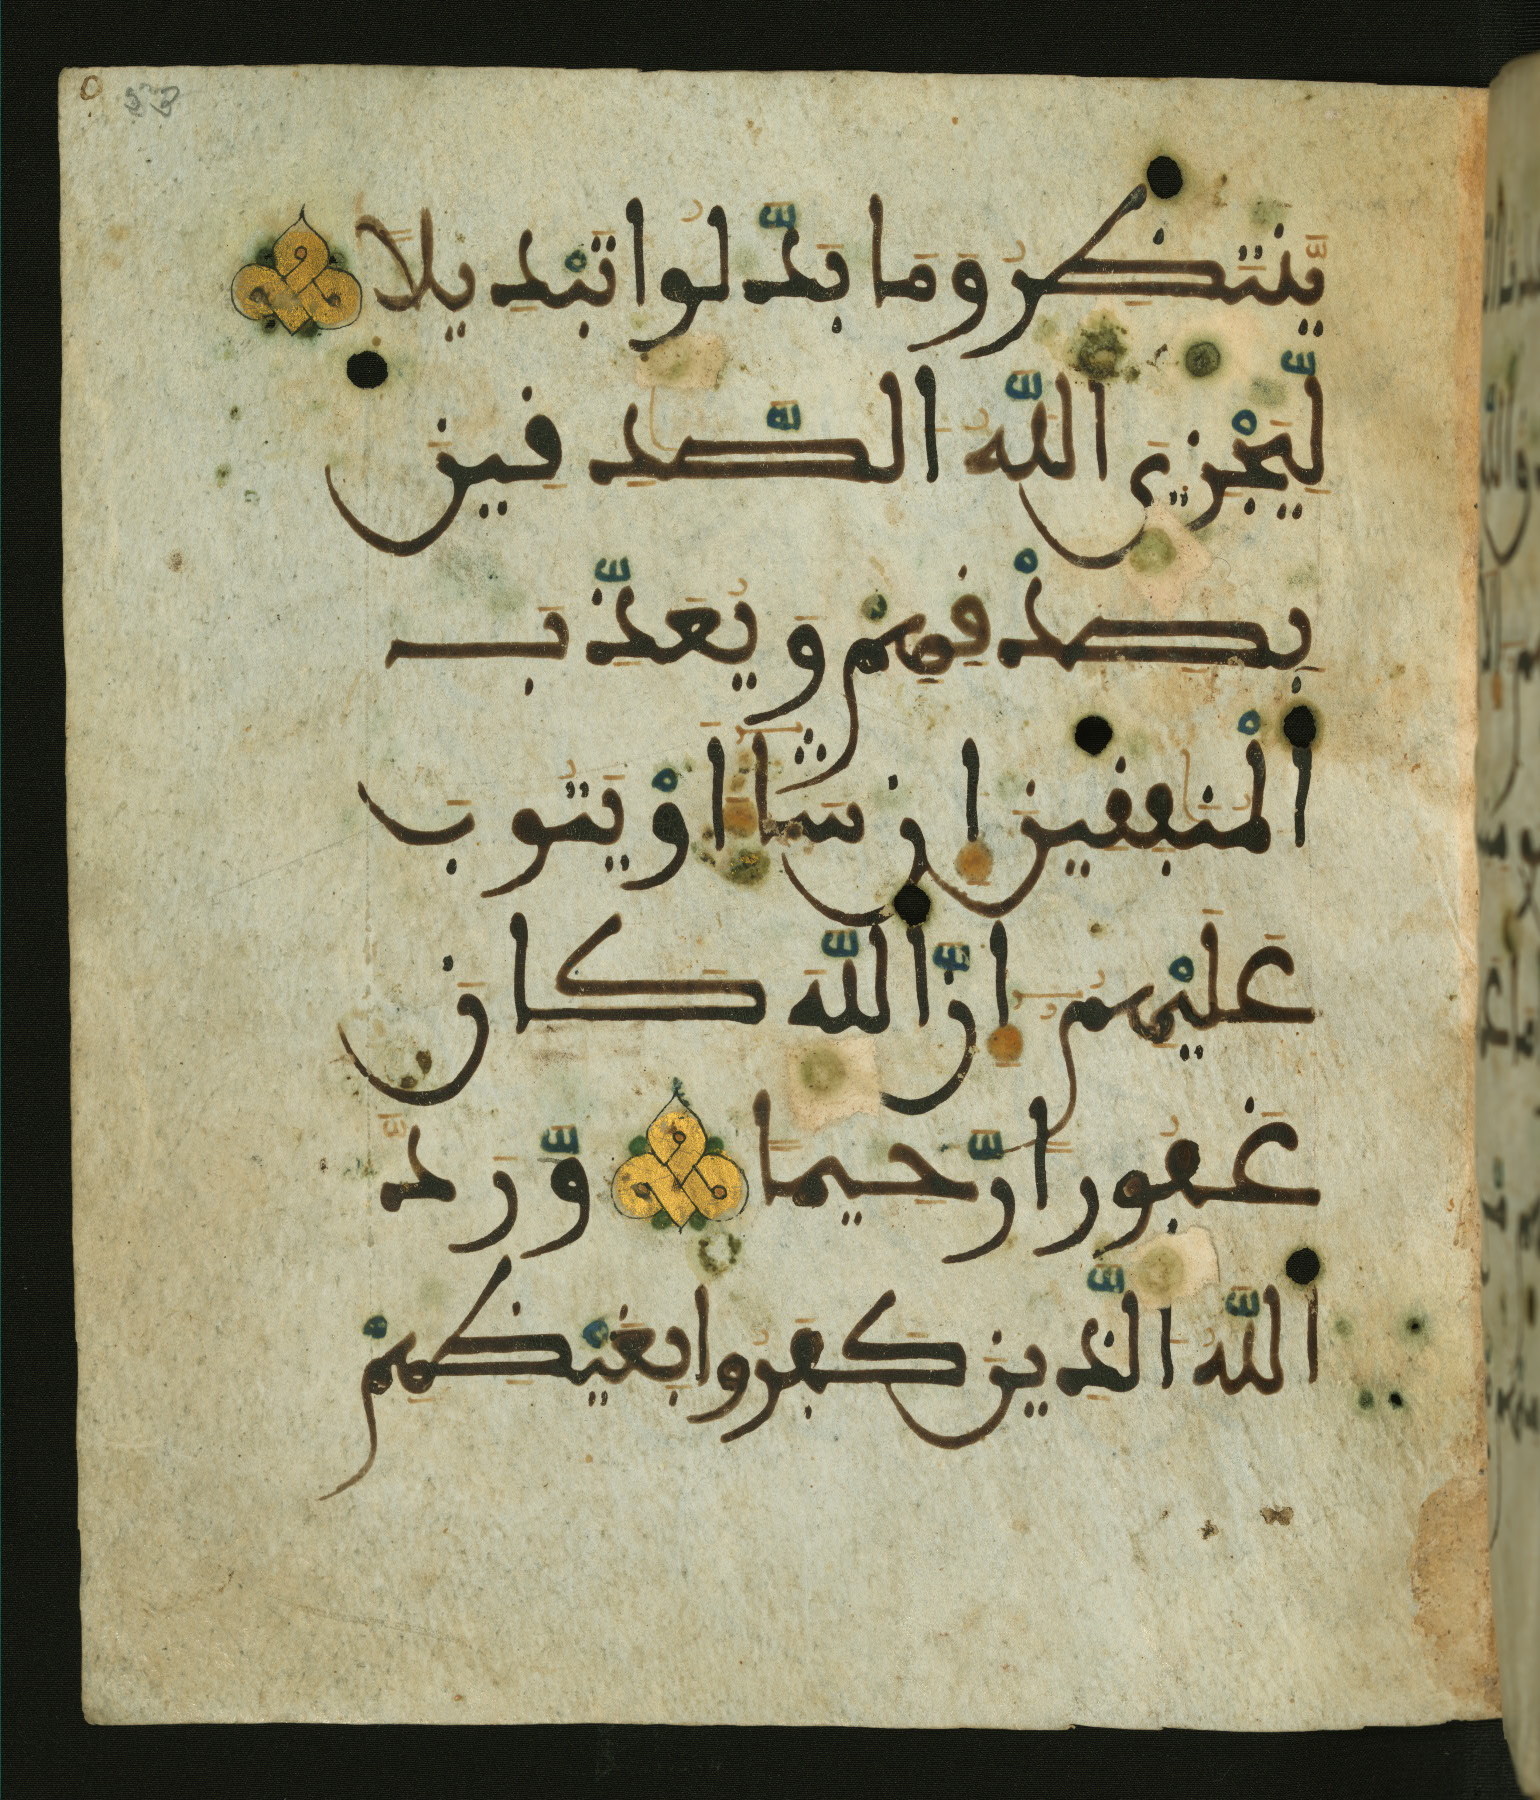 يَّنتَظِرُ وَمَا بَدَّلُوا تَبْدِيلًا
لِّيَجْزِيَ اللَّهُ الصَّدِقِينَ
بِصِدْقِهِمْ وَيُعَذِّبَ
الْمُنَفِقِينَ إِن شَآءَ اَوْ يَتُوبَ
عَلَيْهِمُۥٓ إِنَّ اللَّهَ كَانَ
غَفُورًا رَّحِيمًا وَّرَدَّ
اللَّهُ الَّذِينَ كَفَرُوا بِغَيْظِهِمْ